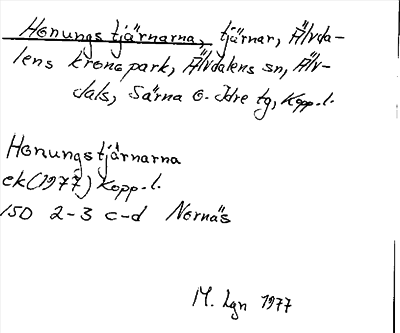 Honungstjärnarna, tjärnar, Älvda-
lens kronopark, Älvdalens sn, Älv-
dals, Särna o. Idre tg, Kopp.l.
Honungstjärnarna
ek (1977) Kopp.l.
15D 2-3 c-d Nornäs
M. Lgn 1977